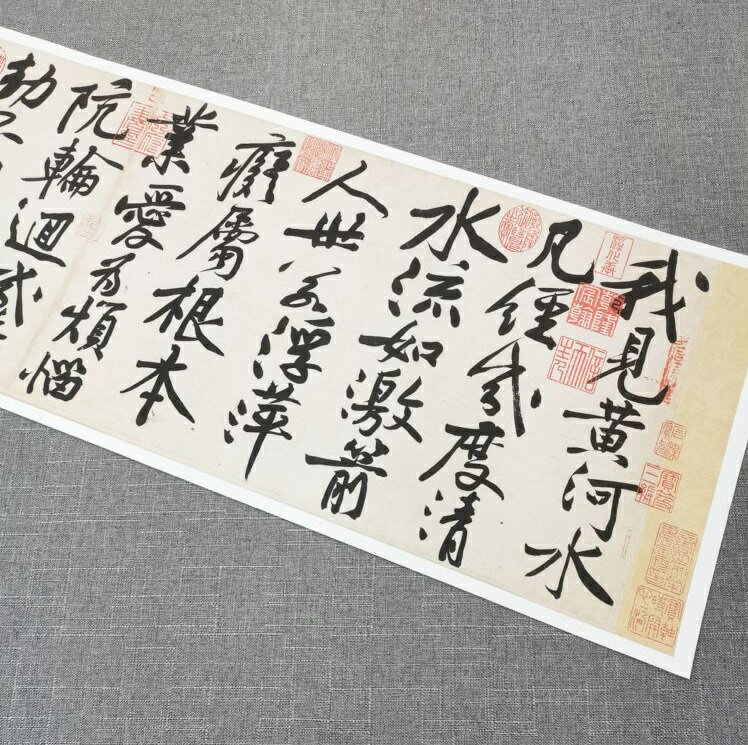 我見黄河水
凡經幾度清
水流如激箭
人世若浮萍
癡屬根本
業愛為煩惱
阬輪迴幾
劫不